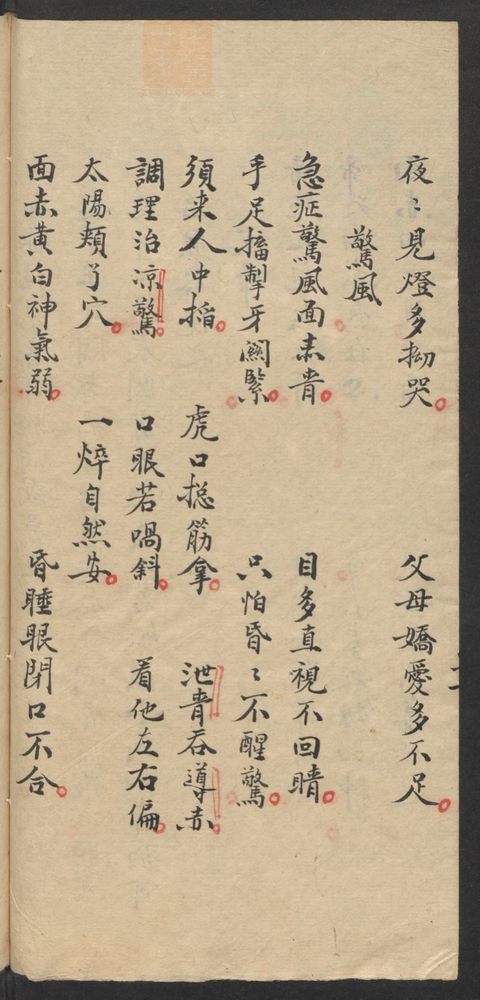 夜〻見燈多拗哭。 父母嬌愛多不足。
驚風
急症驚風面赤青。 目多直視不回睛。
手足搐掣牙關緊。 只怕昏〻不醒驚。
須來人中掐。 虎口揔筋拿。 泄青吞導赤。
調理治凉驚。 口眼若喎斜。 看他左右偏。
太陽頰了穴。 一焠自然安。
面赤黄白神氣弱。 昏睡眼閉口不合。